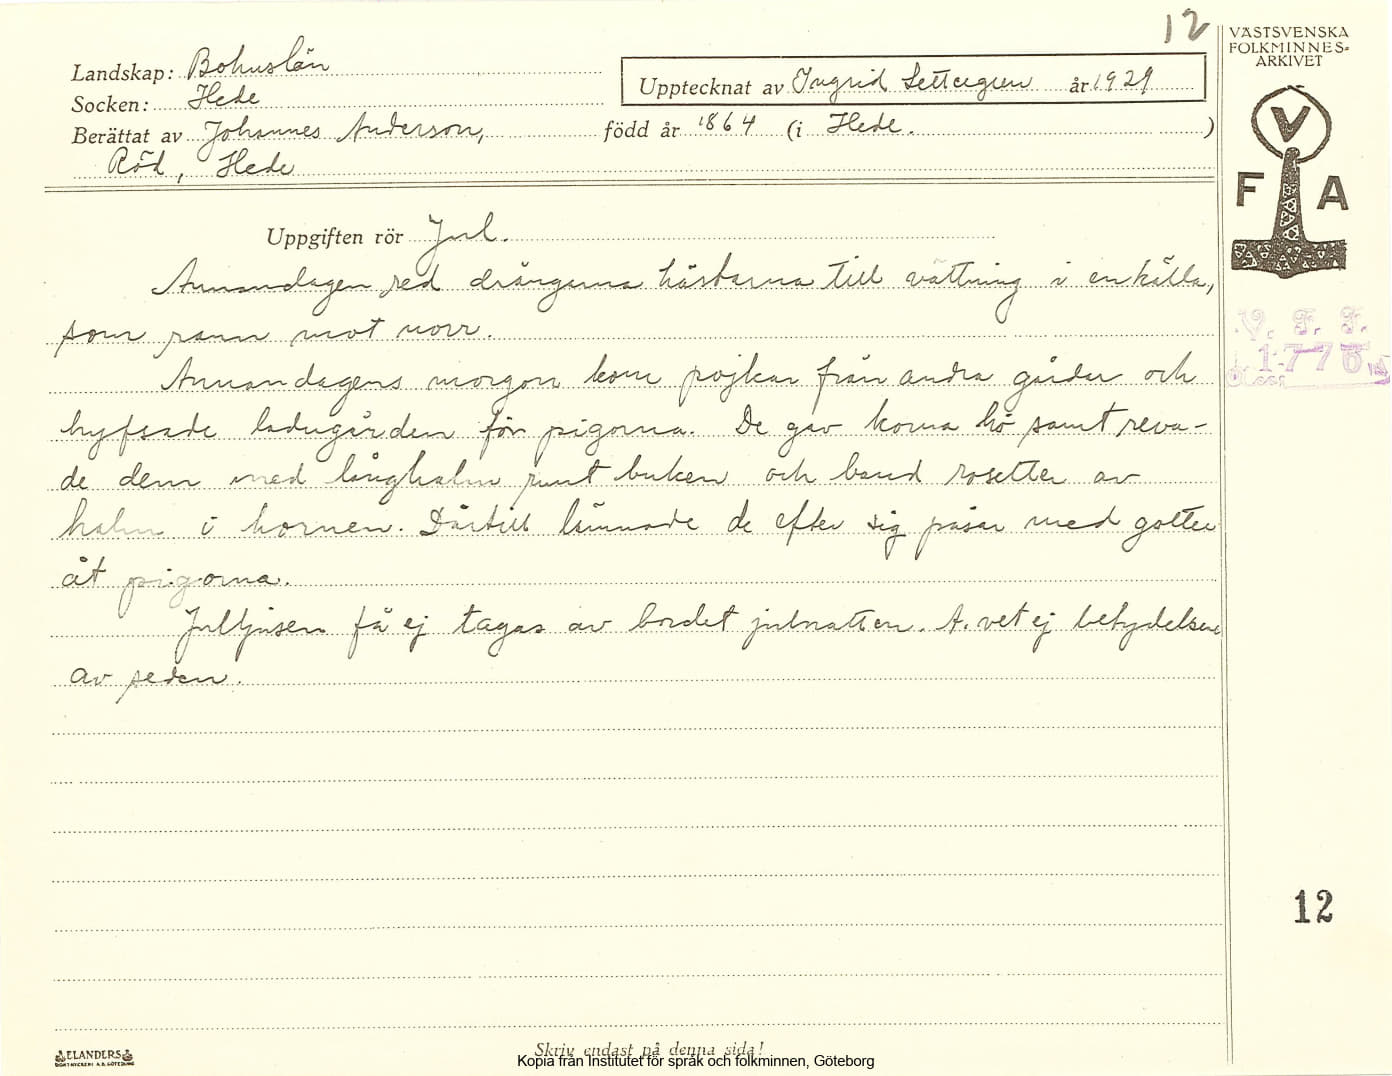 12
VÄSTSVENSKA
FOLKMINNES-
ARKIVET
Landskap: Bohuslän
Upptecknat av Ingrid Settergren år 1929
Socken: Hede
Berättat av Johannes Anderson, född år 1864 (i Hede. )
Röd, Hede
V
F A
Uppgiften rör Jul.
Annandagen red drängarna hästarna till vattning i en källa,
som rann mot norr.
V. F. F.
1776
Annandagens morgon kom pojkar från andra gårdar och
hyfsade ladugården för pigorna. De gav korna hö samt reva-
de dem med långhalm runt buken och band rosetter av
halm i hornen. Därtill lämnade de efter sig påsar med gotter
åt pigorna.
Julljusen få ej tagas av bordet julnatten. A. vet ej betydelsen
av seden.
12
ELANDERS
Skriv endast på denna sida!
Kopia från Institutet för språk och folkminnen, Göteborg